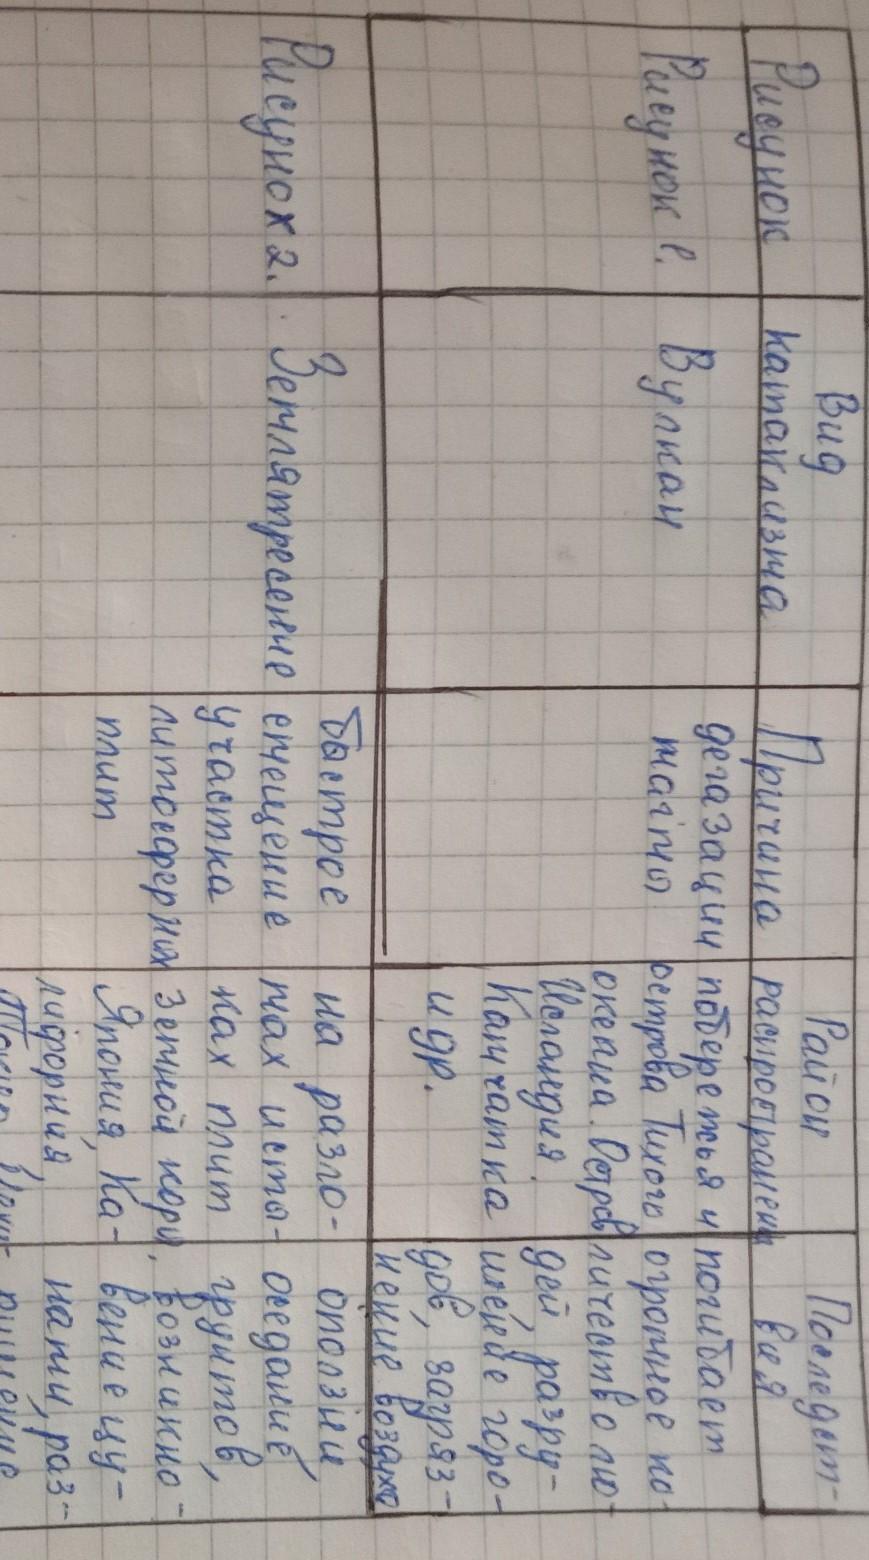 Рисунок
Вид
катаклизма
Причина
Район
распространения
Последст-
вия
Рисунок 1.
Вулкан
дегазации
магмы
побережья и
острова Тихого
океана. Остров
Исландия.
Камчатка
и др.
погибает
огромное ко-
личество лю-
дей, разру-
шение горо-
дов, загряз-
нение воздуха
Рисунок 2.
Землятресение
быстрое
смещение
участка
литосферных
плит
на разло-
мах и сты-
ках плит
земной коры,
Япония, Ка-
лифорния,
оползни
оседание
грунтов,
возникно-
вение цу-
нами, раз-